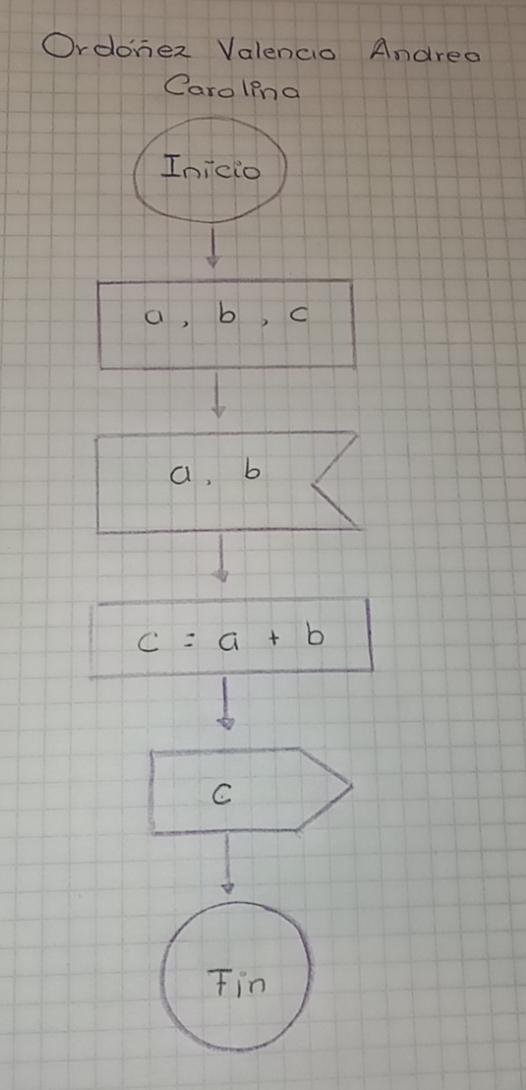 Ordóñez Valencia Andrea
Carolina
Inicio
a, b, c
a, b
c = a + b
c
Fin